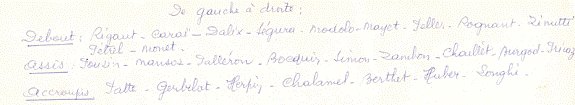 De gauche à droite :
Debout : Rigaut - Caraï - Dalix - Ségura - Moulolo - Mayet - Feller - Pognant - Zinutti
Pétel - Monet.
Assis : Touzin - Mansos - Falléron - Bocquin - Simon - Zambon - Chaillet - Margod -
Accroupis. Fatte - Gerbelot - Herpin - Chalamel - Berthet - Huber - Longhi -